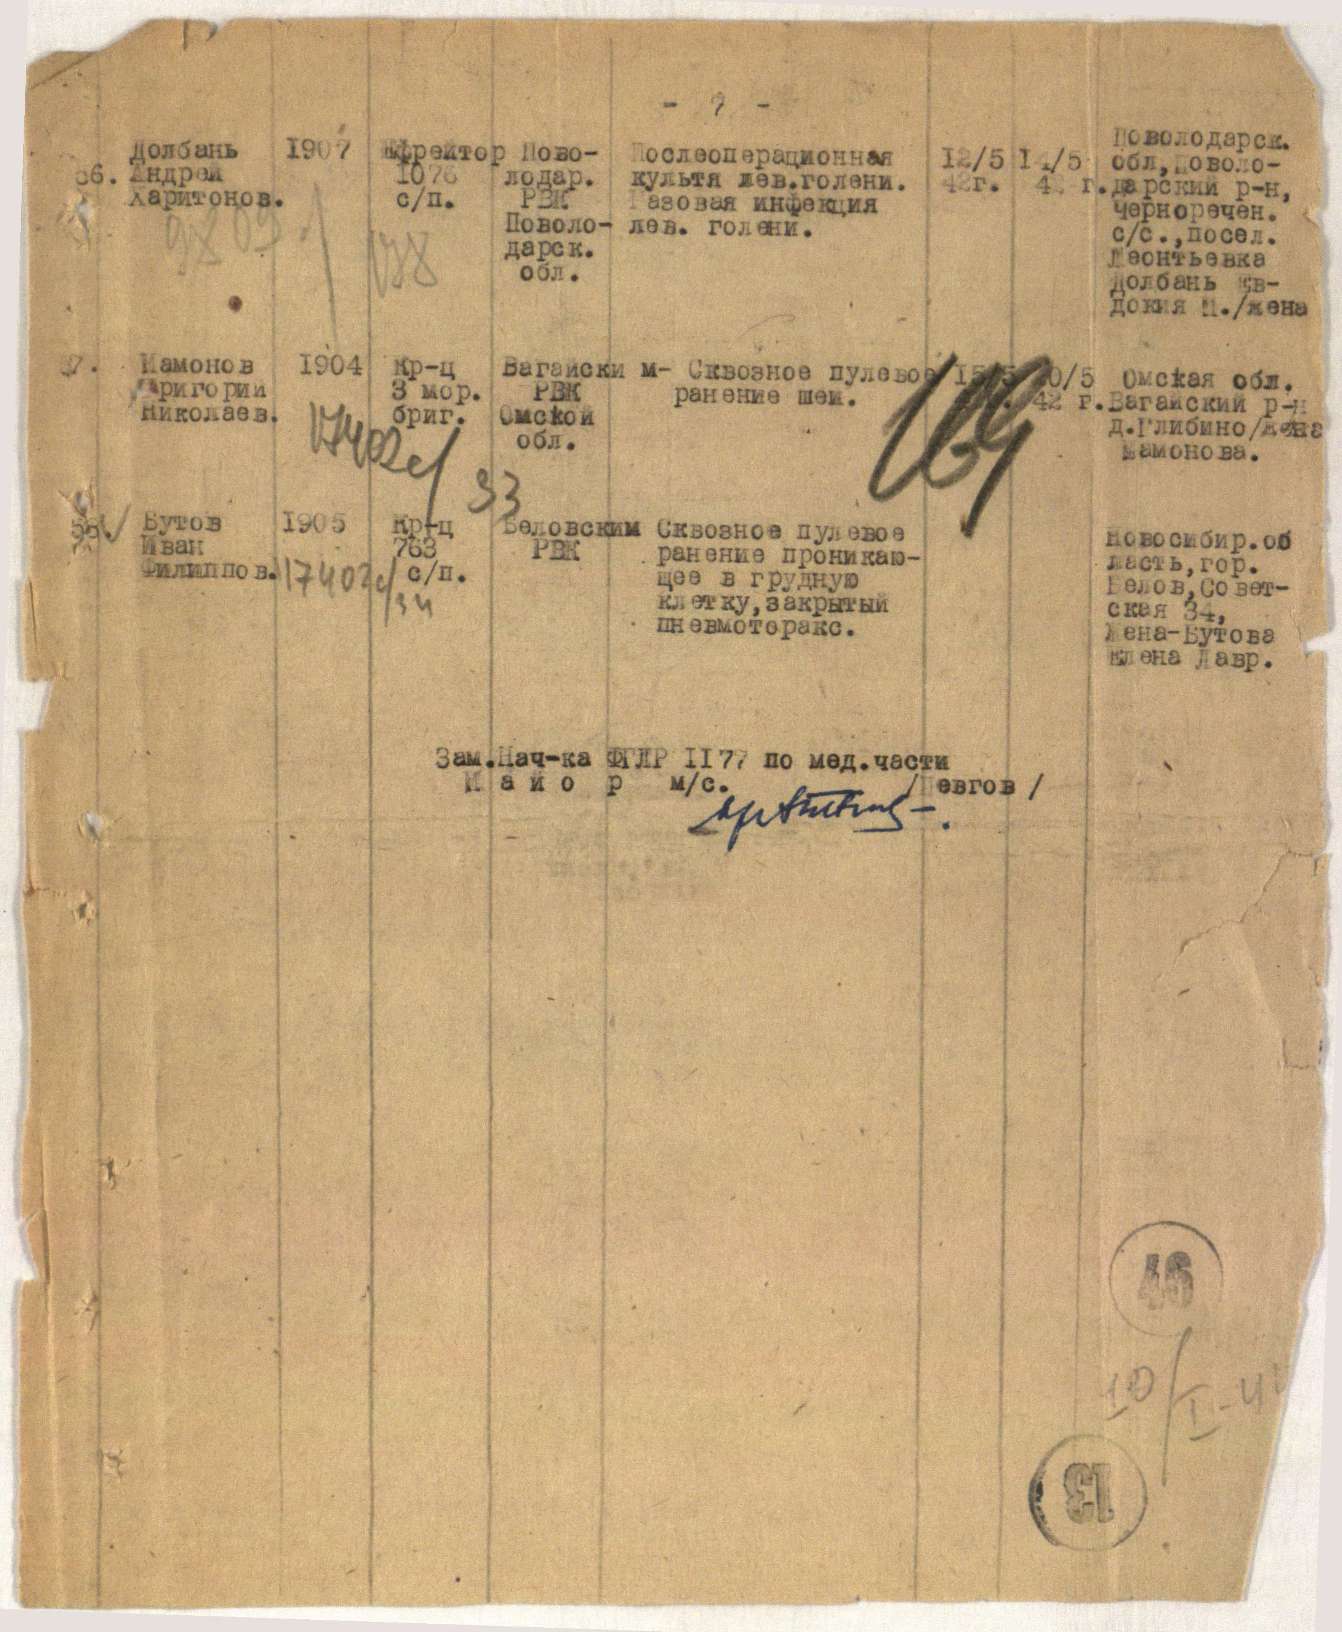 - 7 -
86. Долбань Андрей Харитонов.
1907
Ефрейтор
1076
с/п.
Пово-
лодар.
РВК
Поволо-
дарск.
обл.
Послеоперационная
культя лев.голени.
Газовая инфекция
лев. голени.
12/5
42г.
14/5
42 г.
Поволодарск.
обл,Поволо-
дарский р-н,
Черноречен.
с/с.,посел.
Леонтьевка
Долбань Ев-
докия М./жена
9803
188
87. Мамонов
Григории
Николаев.
1904
Кр-ц
3 мор.
бриг.
Вагайски м-
РВК
Омской
обл.
Сквозное пулевое
ранение шеи.
15/5
0/5
42 г.
Омская обл.
Вагайский р-н
д.Глибино/жена
Мамонова.
17402с/
93
169
88 Бутов
Иван
Филиппов.
1905
Кр-ц
763
с/п.
Беловским
РВК
Сквозное пулевое
ранение проникаю-
щее в грудную
клетку,закрытый
пневмоторакс.
Новосибир.об
ласть,гор.
Белов,Совет-
ская 34,
Жена-Бутова
Елена Лавр.
17402с/
94
Зам.Нач-ка ФГЛР II77 по мед.части
М а й о р м/с. /Певгов /
46
10/I-4
13